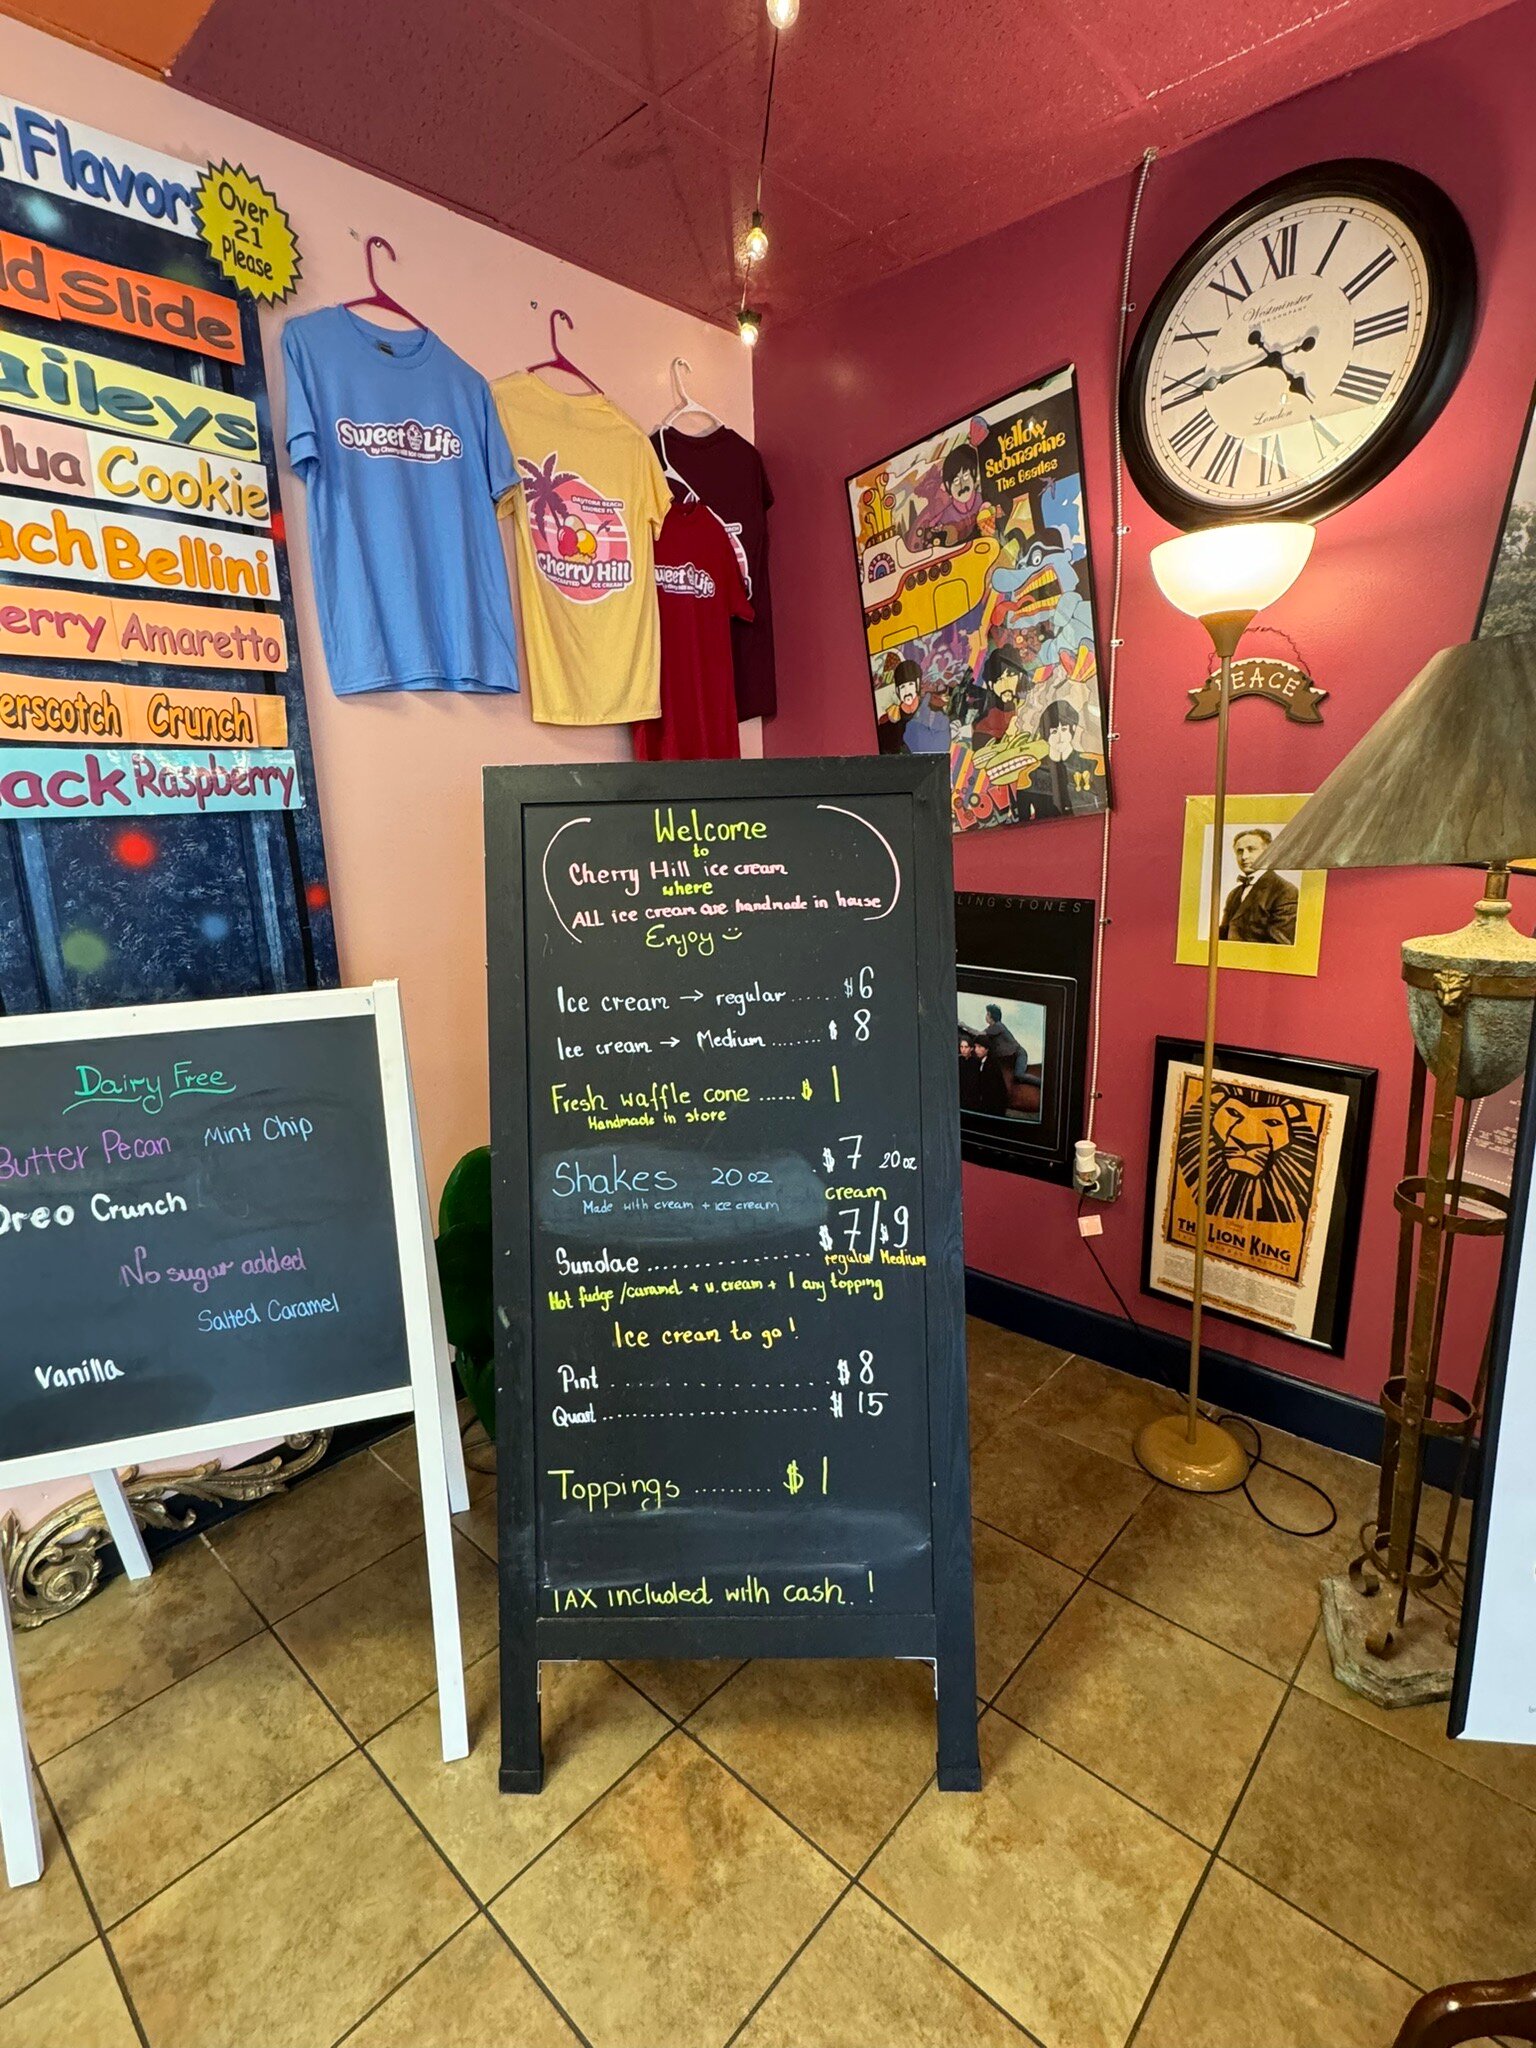 Flavors
Over
21
Please
Slide
Cookie
Bellini
Amaretto
Crunch
Raspberry
Sweet Life
by Cherry Hill Ice cream
DAYTONA BEACH
SHORES FL
Cherry Hill
HANDCRAFTED ICE CREAM
Sweet Life
Yellow
Submarine
The Beatles
LOVE
XII I II III IIII V VI VII VIII IX X XI
Westminster
London
PEACE
LING STONES
THE LION KING
Dairy Free
Butter Pecan Mint Chip
Oreo Crunch
No sugar added
Salted Caramel
Vanilla
Welcome
to
Cherry Hill ice cream
where
ALL ice cream are handmade in house
Enjoy
Ice cream → regular ...... $6
Ice cream → Medium ........ $ 8
Fresh waffle cone ...... $ 1
Handmade in store
Shakes 20 oz $ 7 20 oz
Made with cream + ice cream cream
Sundae .................. $7/$9
regular Medium
Hot fudge /caramel + w. cream + 1 any topping
Ice cream to go!
Pint .................... $ 8
Quart .................... $ 15
Toppings ......... $ 1
TAX included with cash. !